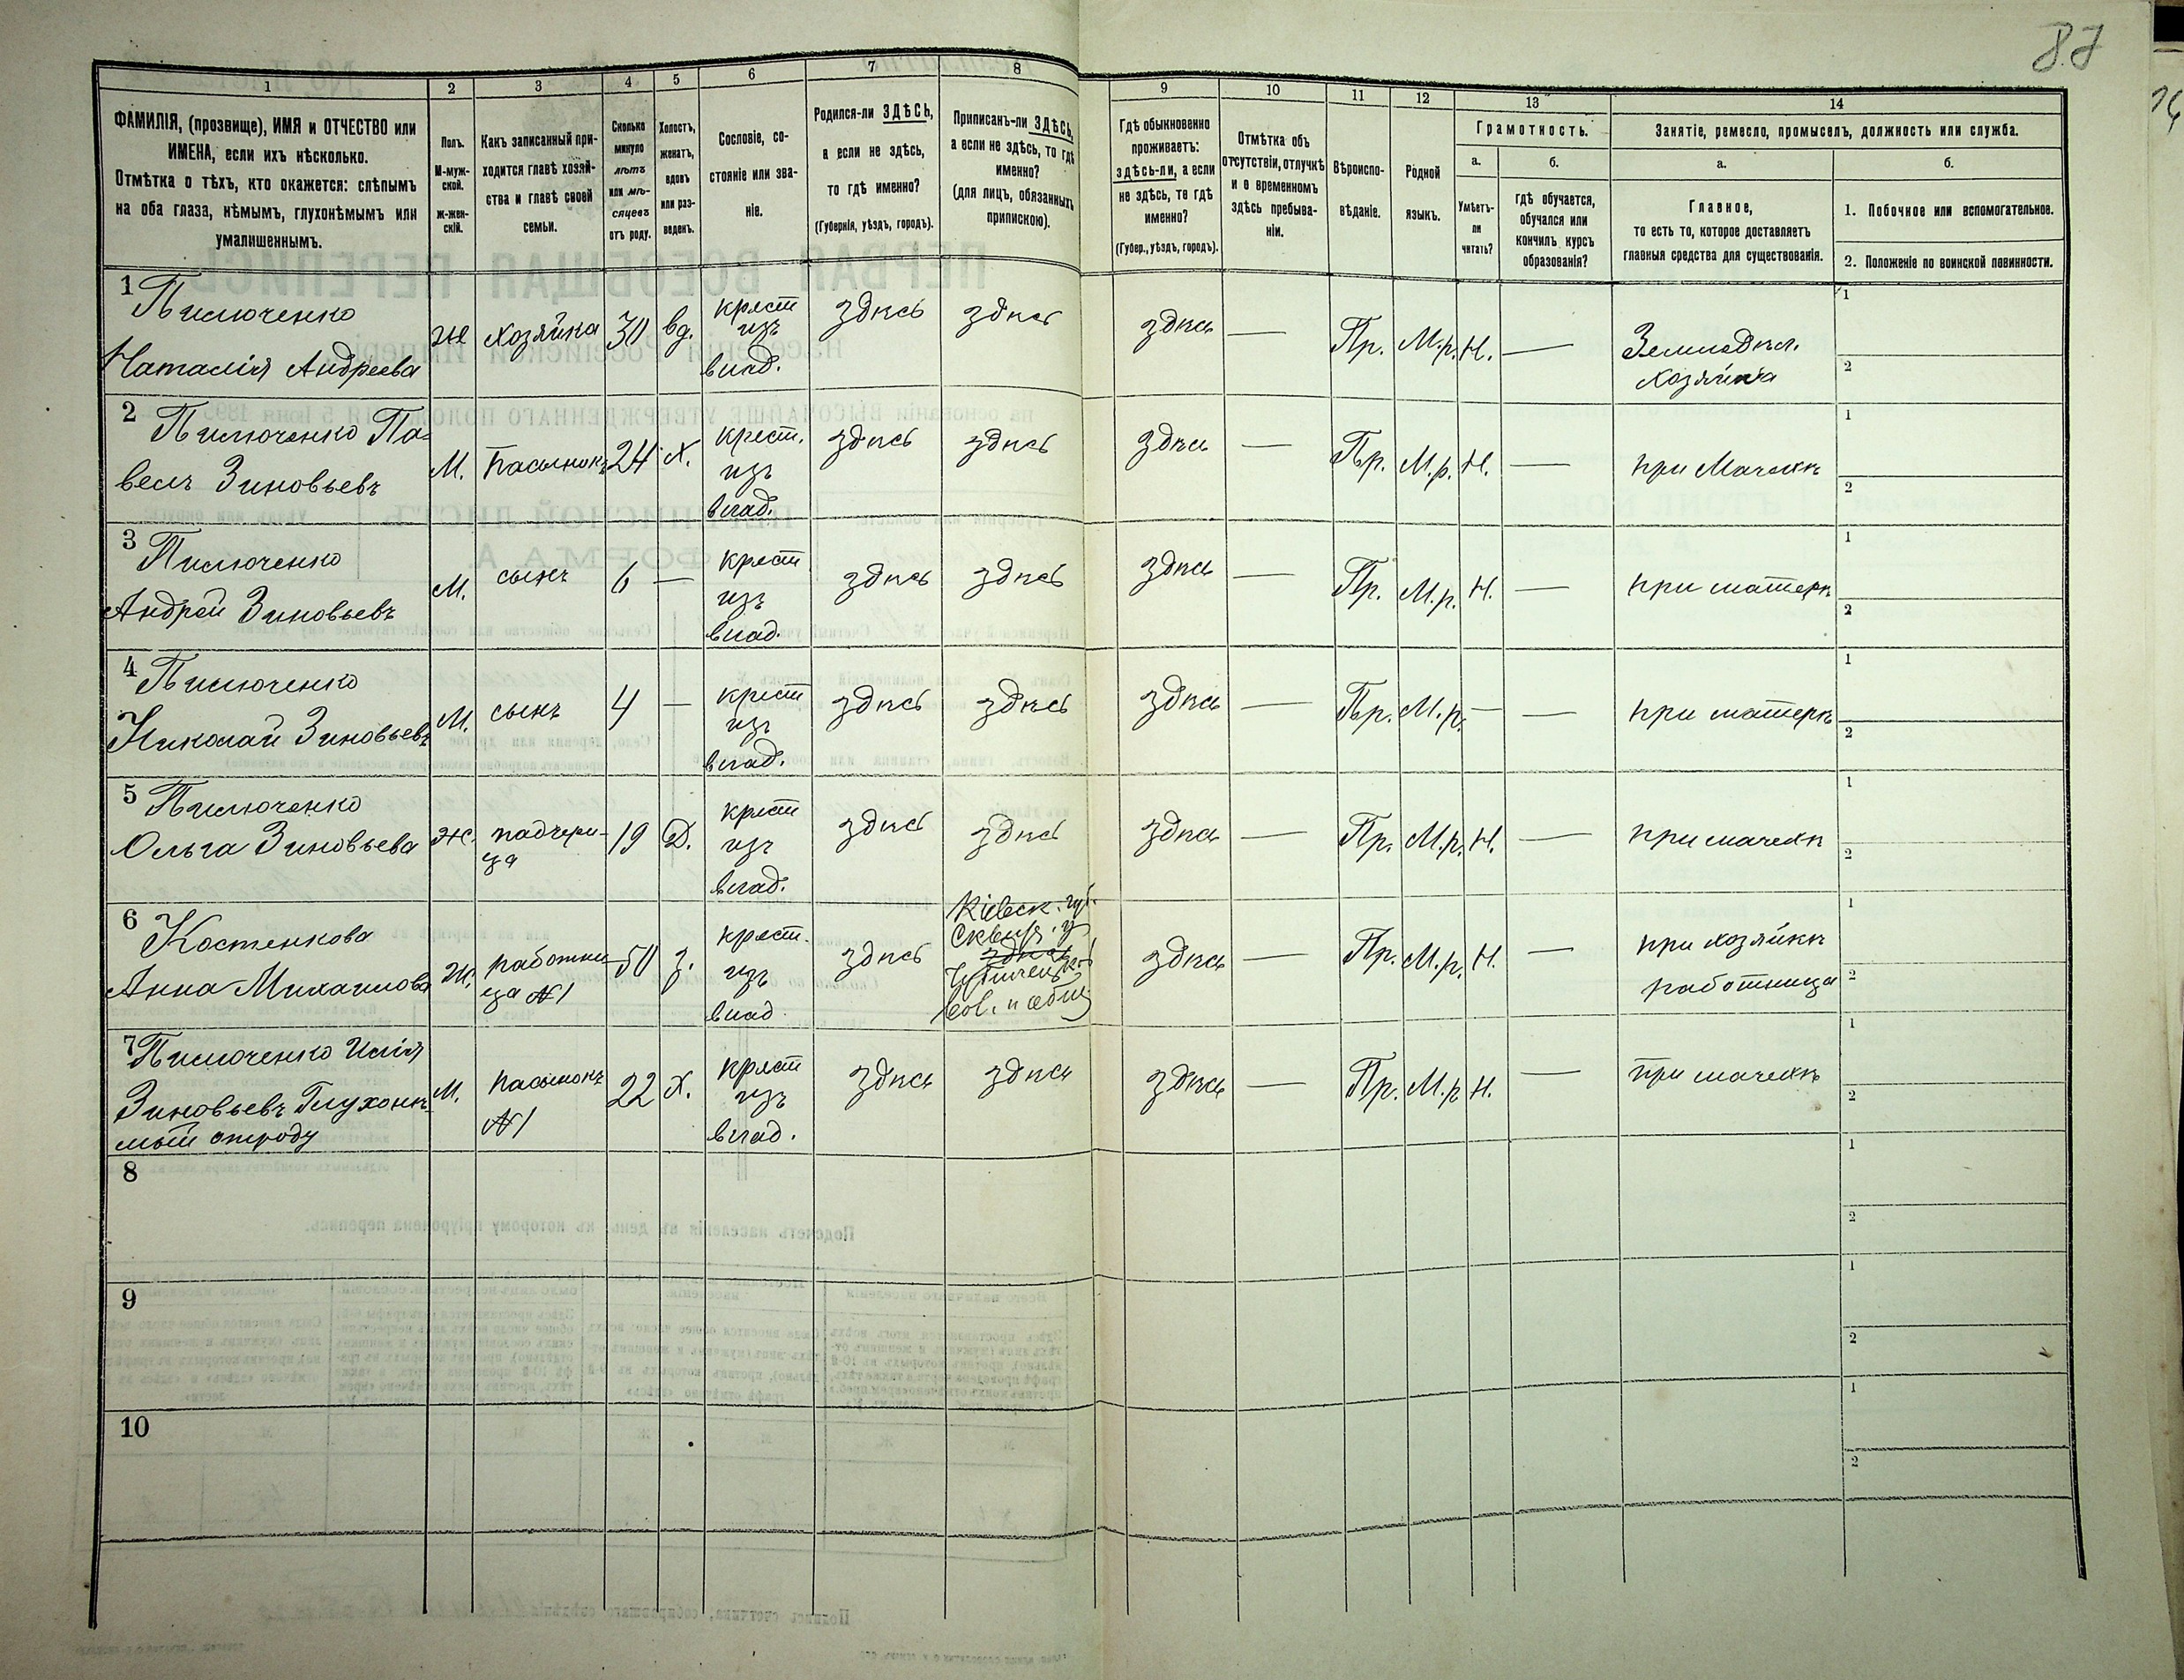 87
1 2 3 4 5 6 7 8 9 10 11 12 13 14
ФАМИЛІЯ, (прозвище), ИМЯ и ОТЧЕСТВО или
ИМЕНА, если ихъ нѣсколько.
Отмѣтка о тѣхъ, кто окажется: слѣпымъ
на оба глаза, нѣмымъ, глухонѣмымъ или
умалишеннымъ.
Полъ.
М-муж-
ской.
ж-жен-
скій.
Какъ записанный при-
ходится главѣ хозяй-
ства и главѣ своей
семьи.
Сколько
минуло
лѣтъ
или мѣ-
сяцевъ
отъ роду.
Холостъ,
женатъ,
вдовъ
или раз-
веденъ.
Сословіе, со-
стояніе или зва-
ніе.
Родился-ли ЗДѢСЬ,
а если не здѣсь,
то гдѣ именно?
(Губернія, уѣздъ, городъ).
Приписанъ-ли ЗДѢСЬ,
а если не здѣсь, то гдѣ
именно?
(для лицъ, обязанныхъ
припискою).
Гдѣ обыкновенно
проживаетъ:
здѣсь-ли, а если
не здѣсь, то гдѣ
именно?
(Губер., уѣздъ, городъ).
Отмѣтка объ
отсутствіи, отлучкѣ
и о временномъ
здѣсь пребыва-
ніи.
Вѣроиспо-
вѣданіе.
Родной
языкъ.
Грамотность.
а.
Умѣетъ-
ли
читать?
б.
гдѣ обучается,
обучался или
кончилъ курсъ
образованія?
Занятіе, ремесло, промыселъ, должность или служба.
а.
Главное,
то есть то, которое доставляетъ
главныя средства для существованія.
б.
1. Побочное или вспомогательное.
2. Положеніе по воинской повинности.
1 Пилюченко
Наталія Андреева
Ж
хозяйка
30
вд.
крест
изъ
влад.
здѣсь
здѣсь
здѣсь
—
Пр.
М.р.
Н.
—
Земледѣл.
хозяйка
1
2
2 Пилюченко Па-
велъ Зиновьевъ
М.
пасынокъ
24
х.
крест.
изъ
влад.
здѣсь
здѣсь
здѣсь
—
Пр.
М.р.
Н.
—
при мачехѣ
1
2
3 Пилюченко
Андрей Зиновьевъ
М.
сынъ
6
—
крест
изъ
влад.
здѣсь
здѣсь
здѣсь
—
Пр.
М.р.
Н.
—
при матерѣ
1
2
4 Пилюченко
Николай Зиновьевъ
М.
сынъ
4
—
крест
изъ
влад.
здѣсь
здѣсь
здѣсь
—
Пр.
М.р.
—
—
при матерѣ
1
2
5 Пилюченко
Ольга Зиновьева
Ж.
падчери-
ца
19
Д.
крест
изъ
влад.
здѣсь
здѣсь
здѣсь
—
Пр.
М.р.
Н.
—
при мачехѣ
1
2
6 Костенкова
Анна Михаилова
Ж.
работни
ца №1
50
з.
крест.
изъ
влад
здѣсь
Кіевск. губ.
Сквир. у
здѣсь
вол. и общ
здѣсь
—
Пр.
М.р.
Н.
—
при хозяйкѣ
работница
1
2
7 Пилюченко Илія
Зиновьевъ Глухонѣ-
мый отроду
М.
пасынокъ
№1
22
х.
крест
изъ
влад.
здѣсь
здѣсь
здѣсь
—
Пр.
М.р
Н.
—
при мачехѣ
1
2
8
1
2
9
1
2
10
1
2